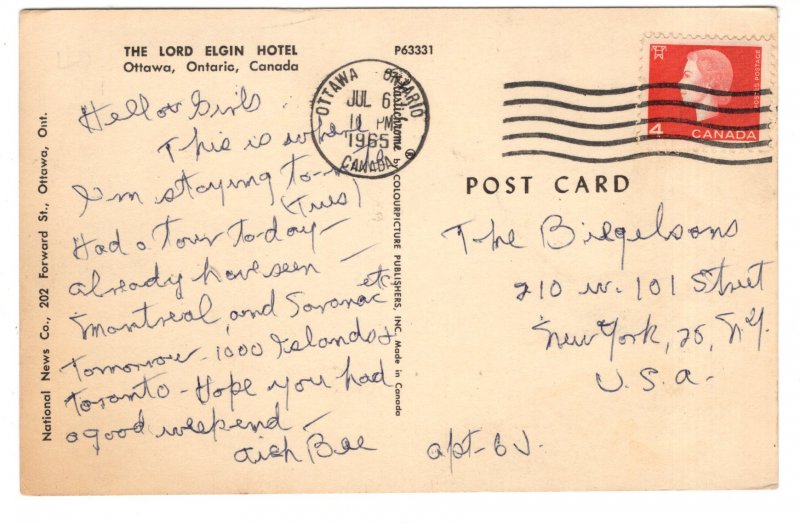 THE LORD ELGIN HOTEL
Ottawa, Ontario, Canada
P63331
Hello Girls
This is where
I'm staying to-n
(Tues)
Had a Tour to-day -
already have seen -
Montreal and Saranac etc
Tomorrow - 1000 Islands &
Toranto - Hope you had
a good weekend -
Bee
National News Co., 202 Forward St., Ottawa, Ont.
Plastichrome ® by COLOURPICTURE PUBLISHERS, INC. Made in Canada
OTTAWA ONTARIO
JUL 6
11 PM
1965
CANADA
POSTES POSTAGE
4 CANADA
POST CARD
The Biegelsons
210 W. 101 Street
New York, 25, N.Y.
U.S.A.
apt - 6J